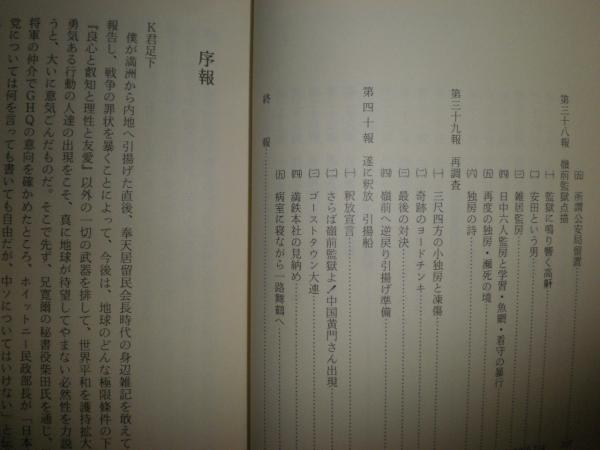 ㈤ 所謂公安局留置
第三十八報 嶺前監獄点描
㈠ 監獄に鳴り響く高鼾
㈡ 安田という男
㈢ 雑居監房
㈣ 日中六人監房と学習・魚網・看守の暴行
㈤ 再度の独房・瀕死の境
㈥ 独房の詩
第三十九報 再調査
㈠ 三尺四方の小独房と凍傷
㈡ 奇跡のヨードチンキ
㈢ 最後の対決
㈣ 嶺前へ逆戻り引揚げ準備
第四十報 遂に釈放 引揚船
㈠ 釈放宣言
㈡ さらば嶺前監獄よ!中国黄門さん出現
㈢ ゴーストタウン大連
㈣ 満鉄本社の見納め
㈤ 病室に寝ながら一路舞鶴へ
終報
序報
K君足下
僕が満洲から内地へ引揚げた直後、奉天居留民会長時代の身辺雑記を敢えて
報告し、戦争の罪状を暴くことによって、今後は、地球のどんな極限条件の下
『良心と叡知と理性と友愛』以外の一切の武器を排して、世界平和を護持拡大
勇気ある行動の人達の出現をこそ、真に地球が待望してやまない必然性を力説
うと、大いに意気ごんだものだ。そこで先ず、兄寛爾の秘書役柴田氏を通じ、
将軍の仲介でGHQの意向を確かめたところ、ホイットニー民政部長が「日本
党については何を言っても書いても自由だが、中ソについてはいけない」と伝